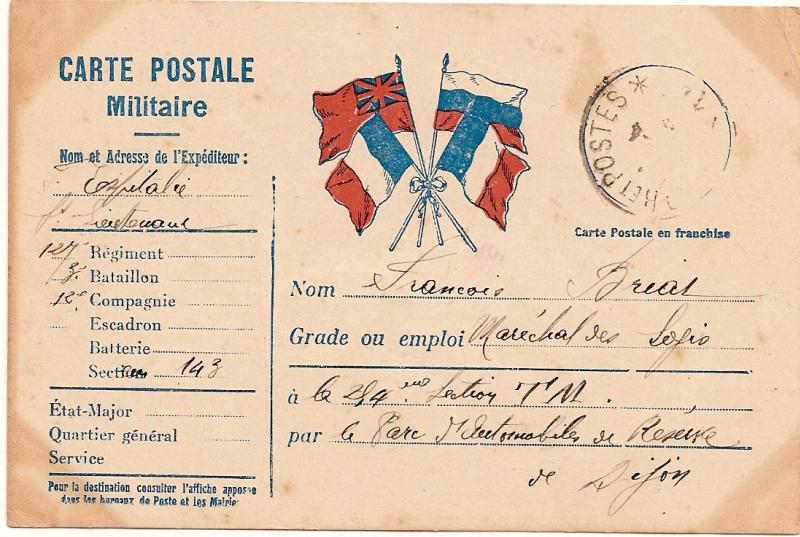 CARTE POSTALE
Militaire
Nom et Adresse de l'Expéditeur :
Espitalié
S. Lieutenant
127 Régiment
3e Bataillon
12e Compagnie
Escadron
Batterie
Section 143
État-Major
Quartier général
Service
Pour la destination consulter l'affiche apposée
dans les bureaux de Poste et les Mairies
ET POSTES *
Carte Postale en franchise
Nom Francois Briat
Grade ou emploi Maréchal des Logis
à la section T M.
par le Parc d'Automobiles de Reserve
de Dijon